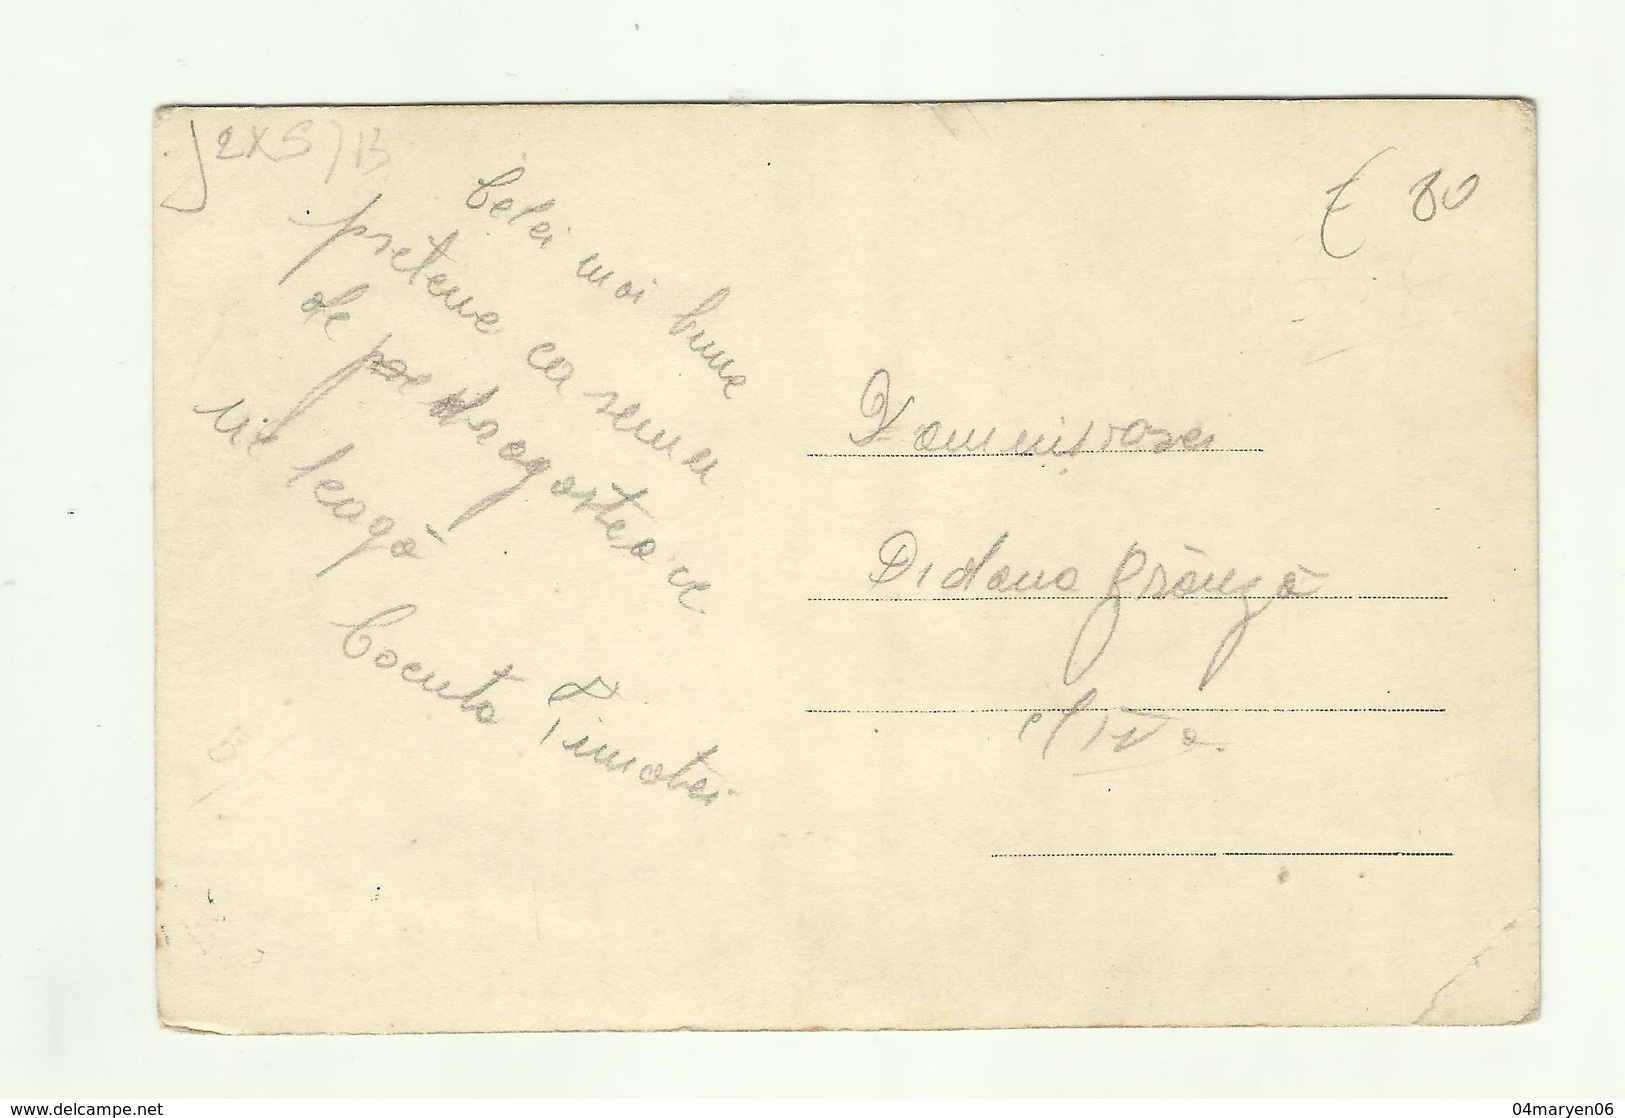 2XS/B
Celei mai bune
pretene ca semn
de dragostea ce
ne leagă
Cocuta Timotei
E 80
Domnișoarei
Didana Brânză
www.delcampe.net
04maryen06